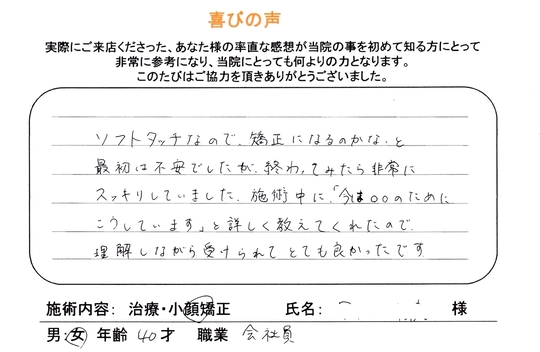 喜びの声
実際にご来店くださった、あなた様の率直な感想が当院の事を初めて知る方にとって
非常に参考になり、当院にとっても何よりの力となります。
このたびはご協力を頂きありがとうございました。
ソフトタッチなので、矯正になるのかな、と
最初は不安でしたが、終わってみたら非常に
スッキリしていました。施術中に、「今は○○のために
こうしています」と詳しく教えてくれたので、
理解しながら受けられてとても良かったです
施術内容: 治療・小顔矯正 氏名: 様
男・女 年齢 40才 職業 会社員